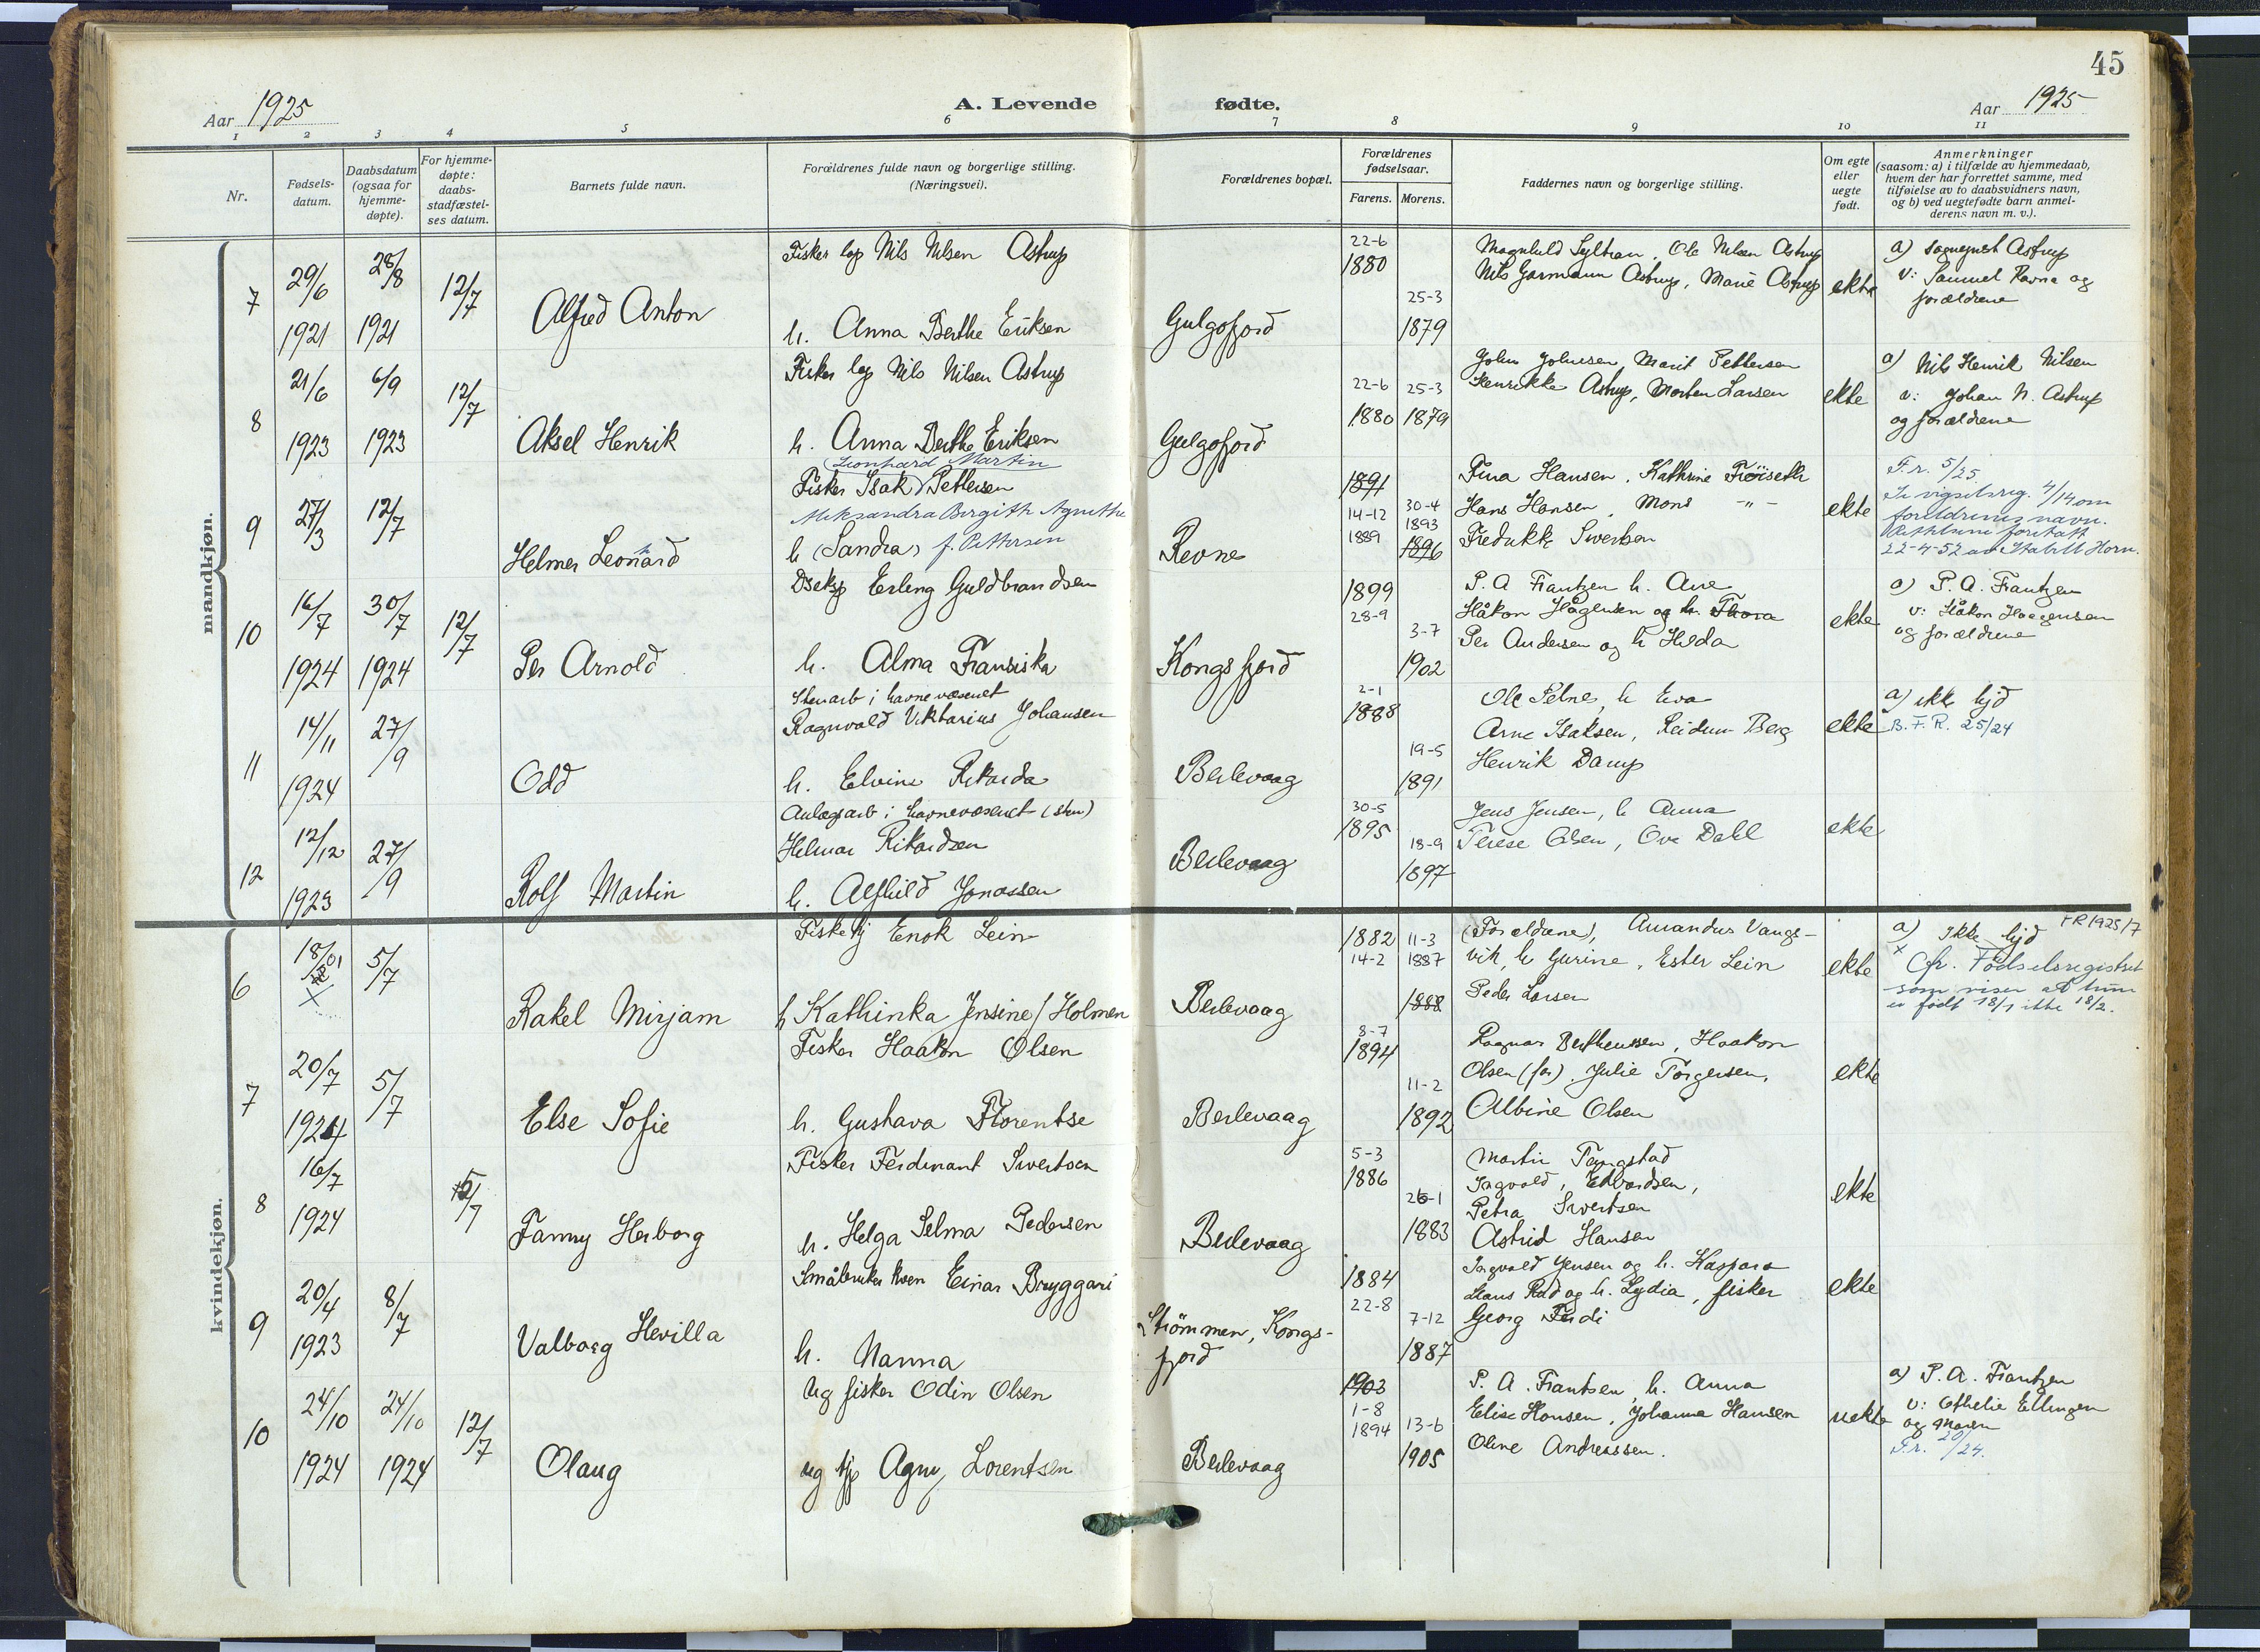 45
Aar 1925
A. Levende fødte.
Aar 1925
1 2 3 4 5 6 7 8 9 10 11
Nr.
Fødsels-
datum.
Daabsdatum
(ogsaa for
hjemme-
døpte).
For hjemme-
døpte:
daabs-
stadfæstel-
ses datum.
Barnets fulde navn.
Forældrenes fulde navn og borgerlige stilling.
(Næringsvei).
Forældrenes bopæl.
Forældrenes
fødselsaar.
Farens. Morens.
Faddernes navn og borgerlige stilling.
Om egte
eller
uegte
født.
Anmerkninger
(saasom: a) i tilfælde av hjemmedaab,
hvem der har forrettet samme, med
tilføielse av to daabsvidners navn,
og b) ved uegtefødte barn anmel-
derens navn m. v.).
mandkjøn.
7
29/6
1921
28/8
1921
12/7
Alfred Anton
Fisker lap Nils Nilsen Astrup
h. Anna Berthe Eriksen
Gulgofjord
22-6
1880
25-3
1879
Magnhild Syltran, Ole Nilsen Astrup
Nils Garmann Astrup, Marie Astrup
ekte
a) sogneprest Astrup
v: Samuel Ravna og
forældrene
8
21/6
1923
6/9
1923
12/7
Aksel Henrik
Fisker lap Nils Nilsen Astrup
h. Anna Berthe Eriksen
Gulgofjord
22-6
1880
25-3
1879
John Johnsen, Marit Pettersen
Henrikke Astrup, Morten Larsen
ekte
a) Nils Henrik Nilsen
v: Johan N. Astrup
og forældrene
9
27/3
12/7
Helmer Leonard
(Leonhard Martin
Fisker Isak) Pettersen
Aleksandra Birgith Agnethe
h (Sandra) f. Pettersen
Revne
1891
14-12
1889
30-4
1893
1896
Fina Hansen, Kathrine Frøiseth
Hans Hansen, Mons -"-
Fredrikke Sivertsen
ekte
F.r. 5/25
Se vigselsreg. 4/14 om
foreldrenes navn.
22-4-52
10
16/7
1924
30/7
1924
12/7
Per Arnold
Dseksp Erling Guldbrandsen
h. Alma Fransiska
Kongsfjord
1899
28-9
3-7
1902
P. A Frantzen h. Ane
Håkon Hågensen og h. Thora
Per Andersen og h Hilda
ekte
a) P. A. Frantzen
v: Håkon Haagensen
og forældrene
11
14/11
1924
27/9
Odd
Stenarb i havnevæsenet
Ragnvald Viktarius Johansen
h. Elvine Rikarda
Berlevaag
2-1
1888
19-5
1891
Ole Selnes, h Eva
Arne Isaksen, Reidun Berg
Henrik Damp
ekte
a) ikke hjd
B.F.R. 25/24
12
12/12
1923
27/9
Rolf Martin
Anlægsarb i havnevæsenet (sten)
Helmar Rikardsen
h. Alfhild Jonassen
Berlevaag
30-5
1895
18-9
1897
Jens Jensen, h Anna
Terese Olsen, Ove Dahl
ekte
kvindekjøn.
6
18/01
5/7
Rakel Mirjam
Fiskekj Enok Lein
h Kathinka Jensine f Holmen
Berlevaag
1882
14-2
11-3
1887
1888
(Forældrene), Amandus Vangs-
vik, h Gurine, Ester Lein
Peder Larsen
ekte
a) Ikke hjd FR 1925/7
x Cfr. Fødselsregistret
som viser at hun
er født 18/1 ikke 18/2.
7
20/7
1924
5/7
Else Sofie
Fisker Haakon Olsen
h. Gustava Florentse
Berlevaag
8-7
1894
11-2
1892
Ragnar Bertheussen, Haakon
Olsen (far), Julie Torgersen,
Albine Olsen
ekte
8
16/7
1924
5/7
Fanny Herborg
Fisker Ferdinant Sivertsen
h. Helga Selma Pedersen
Berlevaag
5-3
1886
26-1
1883
Martin Tangstad
Ingvald, Edvardsen,
Petra Sivertsen
Astrid Hansen
ekte
9
20/4
1923
8/7
Valborg Hevilla
Småbruker kven Einar Bryggari
h. Nanna
Strömmen, Kongs-
fjord
1884
22-8
7-12
1887
Ingvald Jensen og h. Kaspara
Hans Rød og h. Lydia, fisker
Georg Ferdi
ekte
10
24/10
1924
24/10
1924
12/7
Olaug
ug fisker Odin Olsen
ug tjp Agny Lorentsen
Berlevaag
1903
1-8
1894
13-6
1905
P. A. Frantsen, h. Anna
Elise Hansen, Johanna Hansen
Oline Andreassen.
uekte
a) P. A. Frantzen
v: Othelie Ellingsen
og moren
F.r. 20/24.